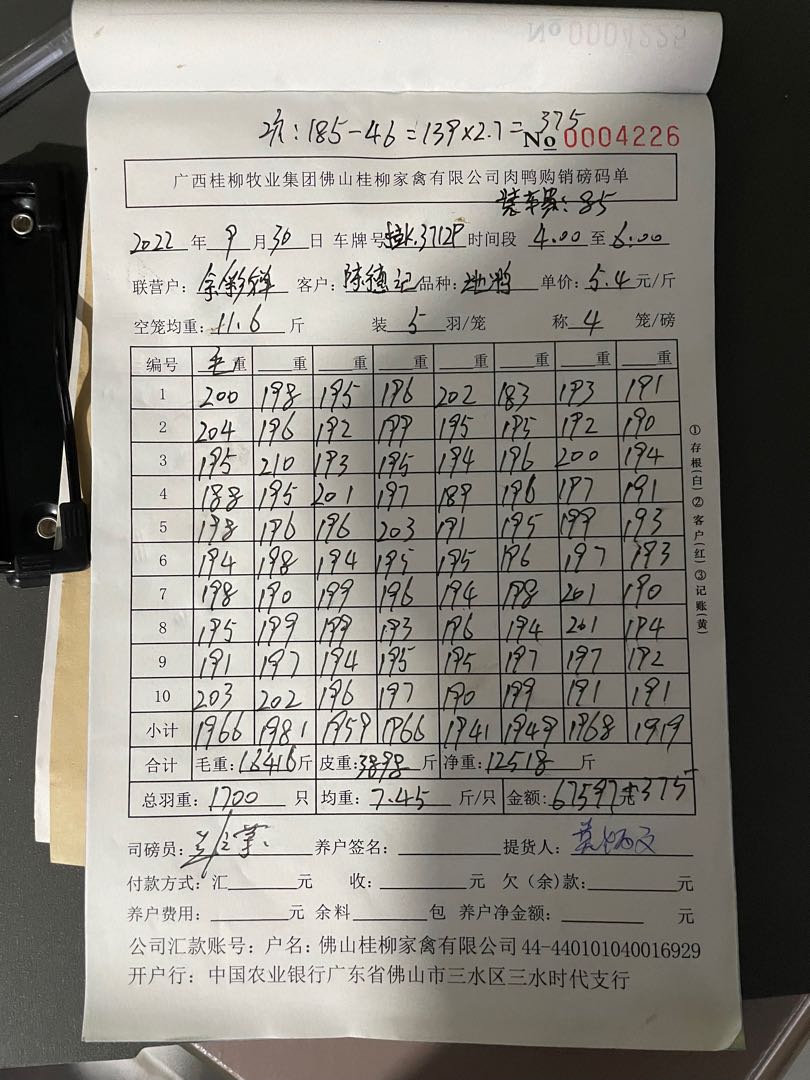 坑:185-46=139×2.7=375
No 0004226
广西桂柳牧业集团佛山桂柳家禽有限公司肉鸭购销磅码单
装车累:85
2022 年 9 月 30 日 车牌号 3712P 时间段 4.00 至 6.00
联营户: 客户:陈德记 品种: 单价:5.4 元/斤
空笼均重:11.6 斤 装 5 羽/笼 称 4 笼/磅
编号 毛重 重 重 重 重 重 重 重
1 200 198 195 196 202 183 193 191
2 204 196 192 199 195 195 192 190
3 195 210 193 195 194 196 200 194
4 188 195 201 197 189 196 197 191
5 198 196 196 203 191 195 199 193
6 194 198 194 195 195 196 197 193
7 198 190 199 196 194 198 201 190
8 195 199 199 193 196 194 201 194
9 191 197 194 195 195 197 197 192
10 203 202 196 197 190 199 191 191
小计 1966 1981 1959 1966 1941 1949 1968 1919
合计 毛重:16416斤 皮重:3898斤 净重:12518斤
总羽重:1700 只 均重:7.45 斤/只 金额:67597元 375
司磅员: 养户签名: 提货人:
付款方式:汇 元 收: 元 欠(余)款: 元
养户费用: 元 余料 包 养户净金额: 元
公司汇款账号:户名:佛山桂柳家禽有限公司44-440101040016929
开户行:中国农业银行广东省佛山市三水区三水时代支行
①存根(白)②客户(红)③记账(黄)
No 0004225